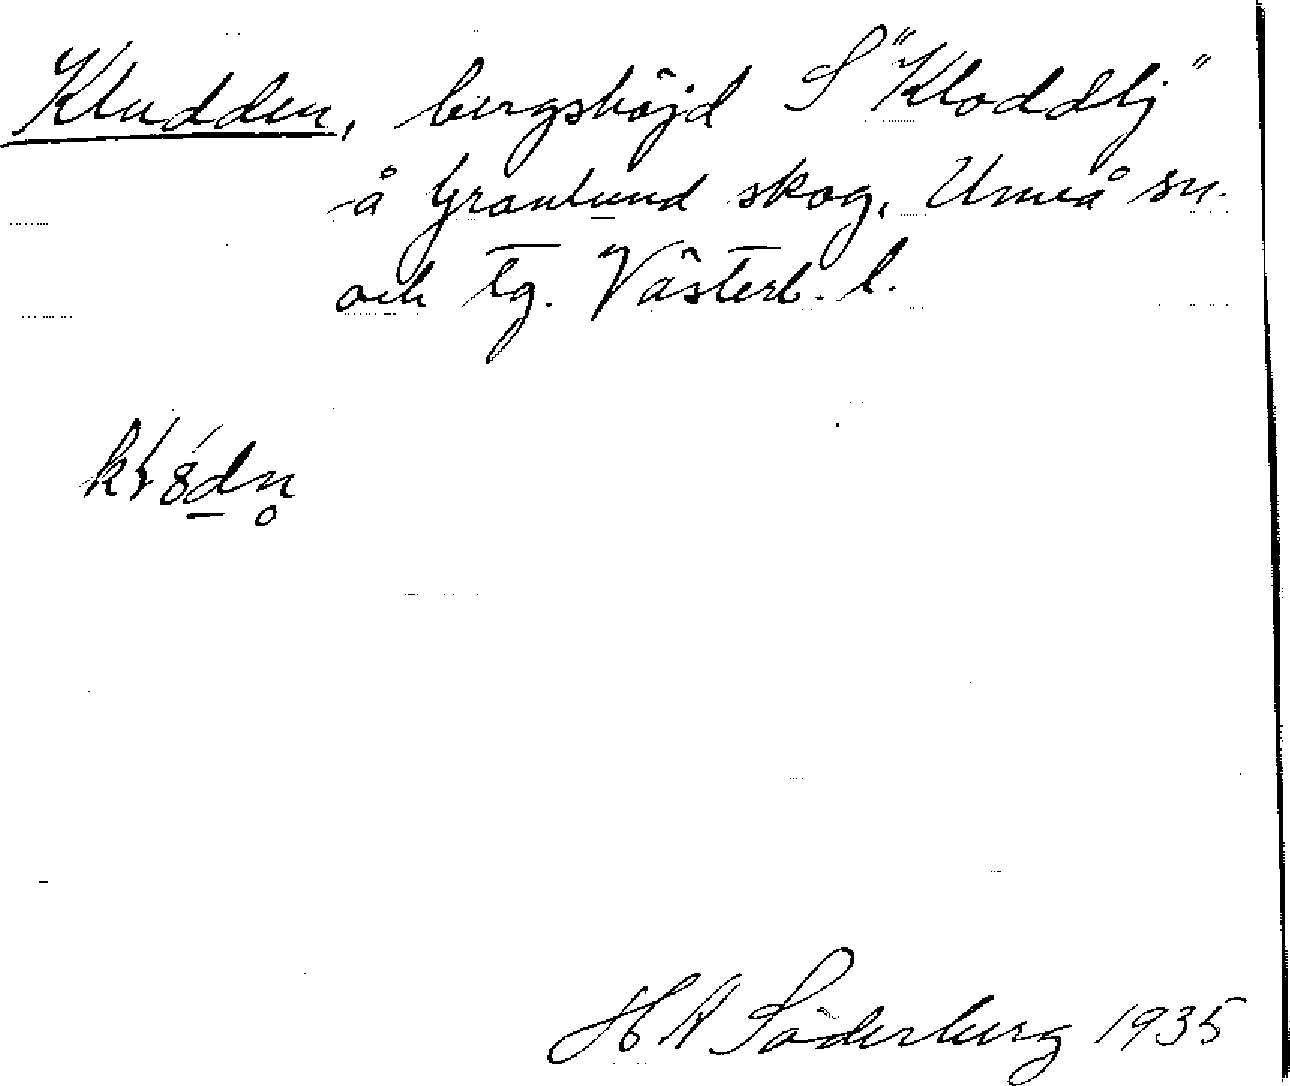 Kludden, bergshöjd S "Kloddlj"
å Granlund skog, Umeå sn.
och tg. Västerb. l.
H A Söderberg 1935